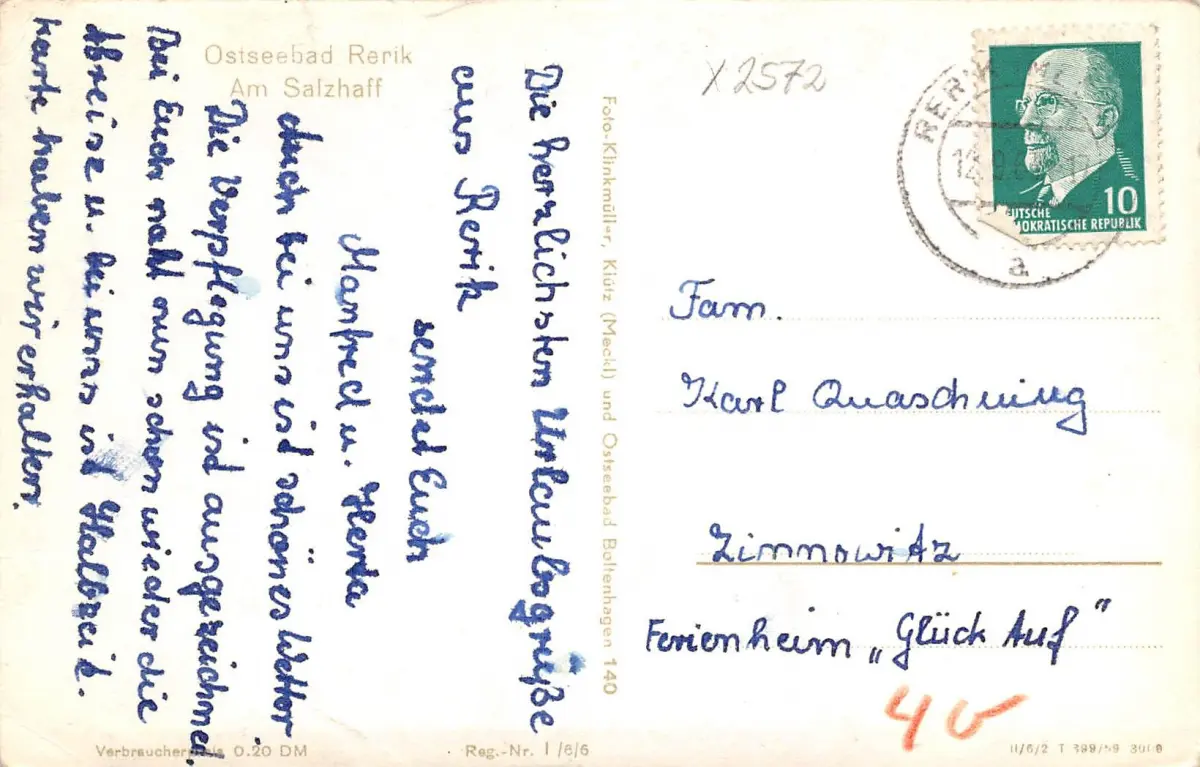 Ostseebad Rerik
Am Salzhaff
Die herzlichsten Urlaubsgrüße
aus Rerik
sendet Euch
Manfred u. Herta
Auch bei uns ist schönes Wetter
Die Verpflegung ist ausgezeichnet
Bei Euch naht nun schon wieder die
Abreise u. bei uns ist Halbzeit.
Karte haben wir erhalten.
Verbraucherpreis 0.20 DM
Reg.-Nr. I/6/6
Foto-Klinkmüller, Klütz (Meckl) und Ostseebad Boltenhagen 140
X 2572
RERIK
a
10
DEUTSCHE
DEMOKRATISCHE REPUBLIK
Fam.
Karl Quaschning
Zinnowitz
Ferienheim „Glück Auf"
40
II/6/2 T 399/59